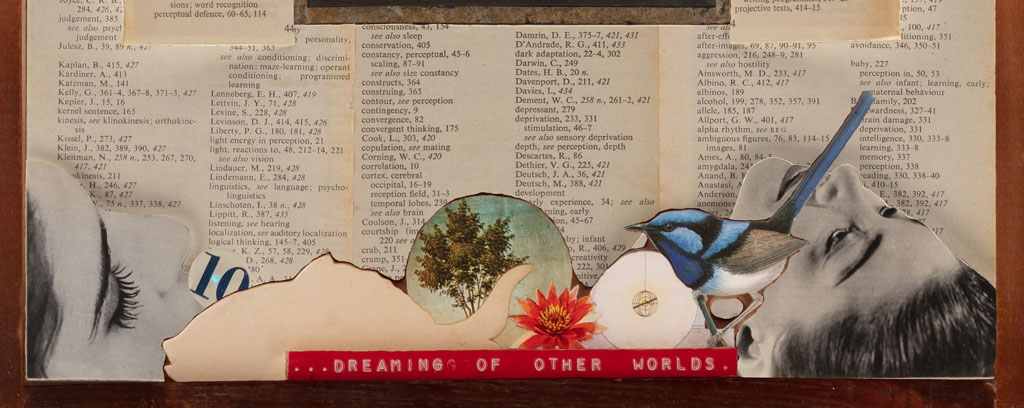 Joyce, C. R.
284, 426,
judgement, 385
see also psych
judgement
Julesz, B., 39, 89 n., 427
Kaplan, B., 415, 427
Kardiner, A., 413
Katzman, M., 141
Kelly, G., 361-4, 367-8, 371-3, 427
Kepler, J., 15, 16
kernel sentence, 165
kinesis, see klinokinesis; orthokine-
sis
Kissel, P., 273, 427
Klein, J., 382, 389, 390, 427
Kleitman, N., 258 n., 253, 267, 270,
417, 421
okinesis, 211
H., 246, 427
K., 87, 427
N., 75 n., 337, 338, 427
sions; word recognition
perceptual defence, 60-65, 114
44ay
personality,
344-51, 363
see also conditioning; discrimi-
nation; maze-learning; operant
conditioning; programmed
learning
Lenneberg, E. H., 407, 419
Lettvin, J. Y., 71, 428
Levine, S., 228, 428
Levinson, D. J., 414, 415, 426
Liberty, P. G., 180, 181, 428
light energy in perception, 21
light, reactions to, 48, 212-14, 221
see also vision
Lindauer, M., 219, 428
Lindemann, E., 284, 428
linguistics, see language; psycho-
linguistics
Linschoten, J., 38 n., 428
Lippitt, R., 387, 435
listening, see hearing
localization, see auditory localization
logical thinking, 145-7, 405
K. Z., 57, 58, 229,
D., 268, 428
'80'
10
consciousness, 43, 154
see also sleep
conservation, 405
constancy, perceptual, 45-6
scaling, 87-91
see also size constancy
constructs, 364
construing, 365
contour, see perception
contingency, 9
convergence, 82
convergent thinking, 175
Cook, L., 303, 420
copulation, see mating
Corning, W. C., 420
correlation, 10
cortex, cerebral
occipital, 16-19
reception field, 31-3
temporal lobes, 239
see also brain
Coulson, J.,
courtship
220 see
crab, 211
cramp, 351
Damrin, D. E., 375-7, 421, 431
D'Andrade, R. G., 411, 433
dark adaptation, 22-4, 302
Darwin, C., 249
Dates, H. B., 20 n.
Davenport, D., 211, 421
Davies, I., 434
Dement, W. C., 258 n., 261-2, 421
depressant, 279
deprivation, 233, 331
stimulation, 46-7
see also sensory deprivation
depth, see perception, depth
Descartes, R., 86
Dethier, V. G., 225, 421
Deutsch, J. A., 36, 421
Deutsch, M., 388, 421
development
early experience, 34; see also
early
45-67
infant
R., 406, 429
222, 301
projective tests, 414-15
after-images, 69, 87, 90-91, 95
aggression, 216, 248-9, 281
see also hostility
Ainsworth, M. D., 233, 417
Albino, R. C., 412, 417
albinos, 189
alcohol, 199, 278, 352, 357, 391
allele, 185, 187
Allport, G. W., 401, 417
alpha rhythm, see EEG
ambiguous figures, 76, 83, 114-15
images, 81
Ames, A., 80, 84
amygdala,
Anand, B.
Anastasi,
Anderson
47
100, 417
conditioning, 351
avoidance, 346, 350-51
baby, 227
perception in, 50, 53
see also infant; learning, early;
maternal behaviour
family, 202
wardness, 327-41
brain damage, 331
deprivation, 331
intelligence, 330, 333-8
learning, 333-8
memory, 337
perception, 338
reading, 330, 338-40
410-15
E., 382, 392, 417
382, 392, 417
...DREAMING OF OTHER WORLDS.